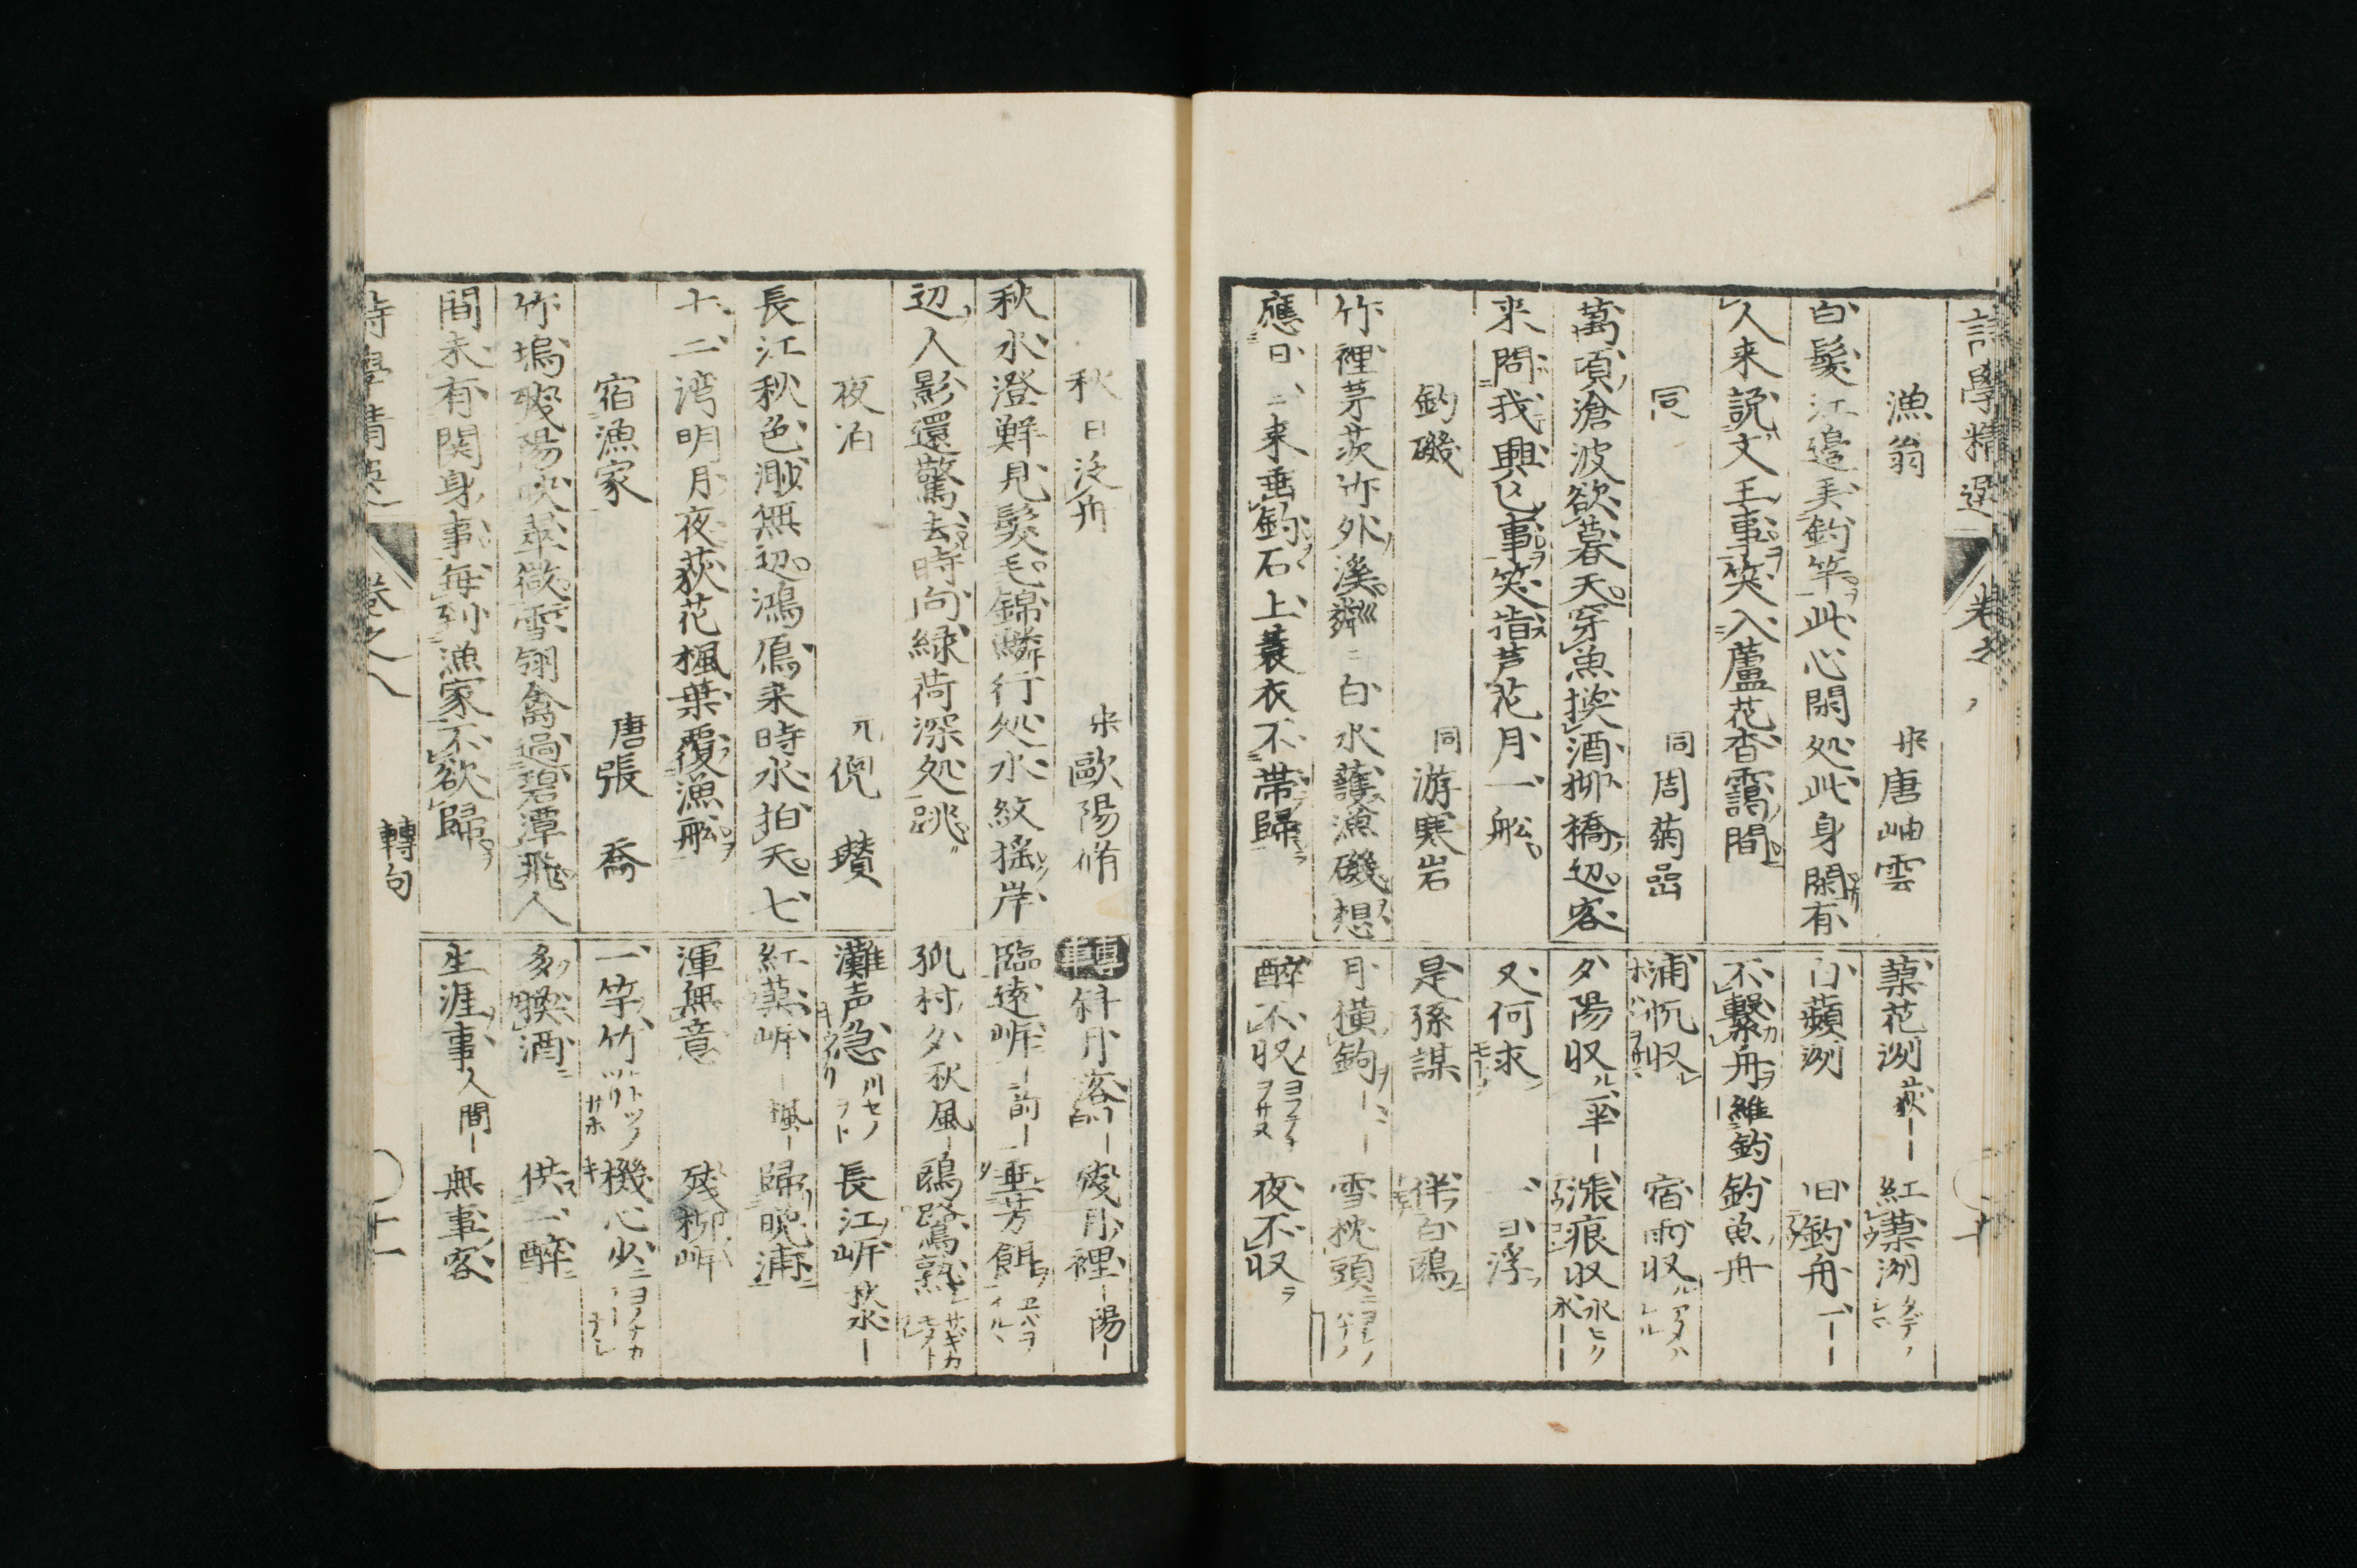 詩學精選 卷之
漁翁 宋唐岫雲
白髪江邉美釣竿此心閑処此身閑有
人来説文王事笑入蘆花杳靄間
同 同周菊嵒
萬頃滄波欲暮天穿魚換酒柳橋辺客
来問我興亡事笑指芦花月一舩
釣磯 同游寒岩
竹裡茅茨竹外溪粼〻白水護漁磯想
應日〻来垂釣石上蓑衣不帯歸
蓼花洲荻―― 紅蓼洲タデノ
白蘋洲 旧釣舟一――
不繋舟維釣 釣魚舟
浦帆収 宿雨収
夕陽収ル平― 漲痕収
又何求 日浮
是孫謀 伴白鷗
月横鉤 雪枕頭
醉不収 夜不収
十
秋日泛舟 宋歐陽脩
秋水澄鮮見髪毛錦鱗行処水紋揺岸
辺人影還驚去時向緑荷深処跳
夜泊 元倪瓚
長江秋色渺無辺鴻鴈来時水拍天七
十二湾明月夜荻花楓葉覆漁舩
宿漁家 唐張喬
竹塢殘陽映翠微雪翎禽過碧潭飛人
間未有関身事毎到漁家不欲歸
轉 斜月落― 殘月裡―陽―
臨遠岸―前― 垂芳餌
孤村夕秋風― 鷗鷺熟
灘声急川セノ 長江岸秋水―
紅蓼岸―楓― 歸晩浦
渾無意 殘柳岸
一竿竹 機心少
多喚酒 供一醉
生涯事人間― 無事客
詩學精選 卷之八 轉句 十一